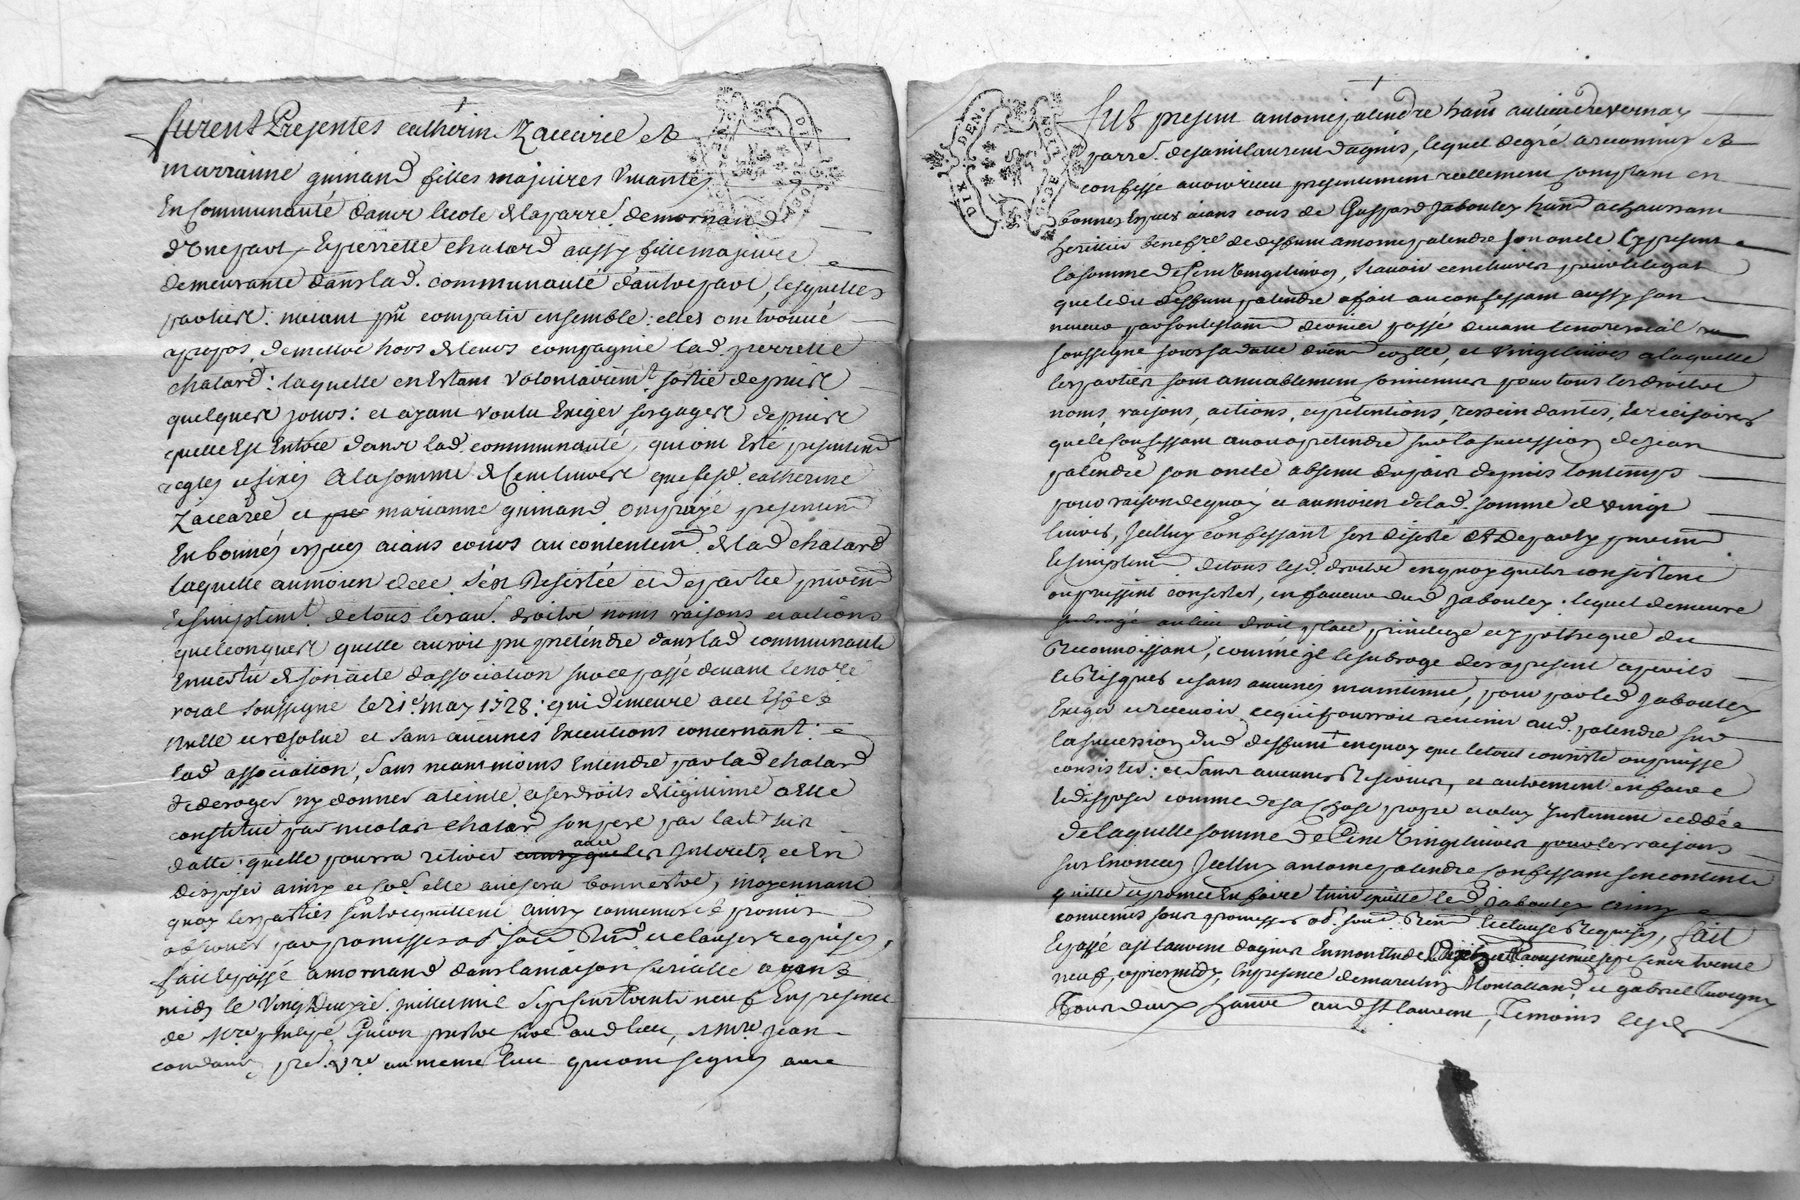 furent Presentes catherin Zaccarée et
marianne guinand filles majeures vivantes
En communauté dans lecole & laparre. demornand
d'Une part, Et pierrette chatard aussy fille majeure
demeurante dans lad. communauté d'autre part, lesquelles
parties: ne compatir ensemble: elles ont trouvé
apropos, demettre hors & leurs compagnie lad. pierrette
chatard: laquelle en Estant volontairemt. sortie depuis
quelques jours: et ayant voulu Exiger ses gages depuis
quelle Est Entrée dans lad. communauté, qui ont Esté presentemt
regles et fixés Ala somme & Cent livres que lesd. catherine
Zaccarée et marianne guinand ont payé presentemt
En bonnes especes aians cours au contentemt. & lad chatard
laquelle aumoien dece s'est Desistée et departie puremt
Et simplemt. detous les droits noms raisons et actions
quelconques quelle auroit pu pretendre dans lad communauté
En vertu & son acte d'association passé devant le nore
roial soussigne le 21e. may 1728: qui demeure
Nulle et resolue et sans aucunes Executions concernant
lad association, sans neantmoins Entendre par lad chatard
dederoger ny donner ateinte a ses droits & legitime a Elle
constitué par nicolas chatard son pere par lact sur
datté: quelle pourra retirer avec les Interets et En
disposer ainsy et où elle avisera bonnestre, moyennant
quoy les parties sentrequittent ainsy convenu & promis
observer par promesses ob. soum. Renon. et clauses requises,
fait et passé a mornand dans la maison curialle avant
midy le Vingt Deuxe. juillet mil sept cent trente neuf En presence
de Mre. Guion pretre curé aud lieu, & Mre. jean
pre. vre. au meme lieu qui ont signes avec
fut present antoine palendre hant. au lieu de vernay
parre. de saint laurent dagnis, lequel de gré a reconnu et
confessé avoir receu presentement reellement comptant en
bonnes Especes aians cours de Gaspard jaboulez hant. a chaussant
heritier benefre. de deffunt antoine palendre son oncle Cy present
la somme de Cent Vingt livres, scavoir cent livres pour le legat
que led. deffunt palendre a fait au confessant aussy son
neveu par son testamt. dernier passé devant le nore roial
soussigne sous sa datte, et vingt livres a laquelle
les parties sont amiablement convenues pour tous les droits
noms, raisons, actions, et pretentions, rescindantes, Et rescisoires
que le confessant auroit a pretendre sur la succession de jean
palendre son oncle absent du pais depuis lontemps
pour raison de quoy et au moien de lad. somme de vingt
livres, Icelluy confessant sest desisté et departy purement
Et simplemt. de tous lesd. droits en quoy quils consistent
ou puissent consister, en faveur dud jaboulez: lequel demeure
subrogé au lieu droit place privilege et ypotheque du
Reconnoissant, comme il le subroge des a present a perils
et Risques et sans aucunes maintenue, pour par led jaboulez
Exiger et recevoir ce qui pourroit revenir aud. palendre sur
la succession dud deffunt en quoy que le tout consiste ou puisse
consister: et sans aucunes Reserves, et autrement en faire
Et disposer comme de sa Chose propre et a luy justement ceddée
de laquelle somme de Cent Vingt livres pour les raisons
sus Enoncées Icelluy antoine palendre confessant sen contente
quitte et promet En faire tenir quitte led jaboulez ainsy
convenus sous promesses ob. soum. Renon. et clauses Requises, fait
Et passé a st laurent dagnis En mon Etude mil sept cent trente
neuf, apres midy, En presence de Montalland, et gabriel
Tous deux hants. aud st laurent, Temoins
DIX DEN.
DIX DEN.